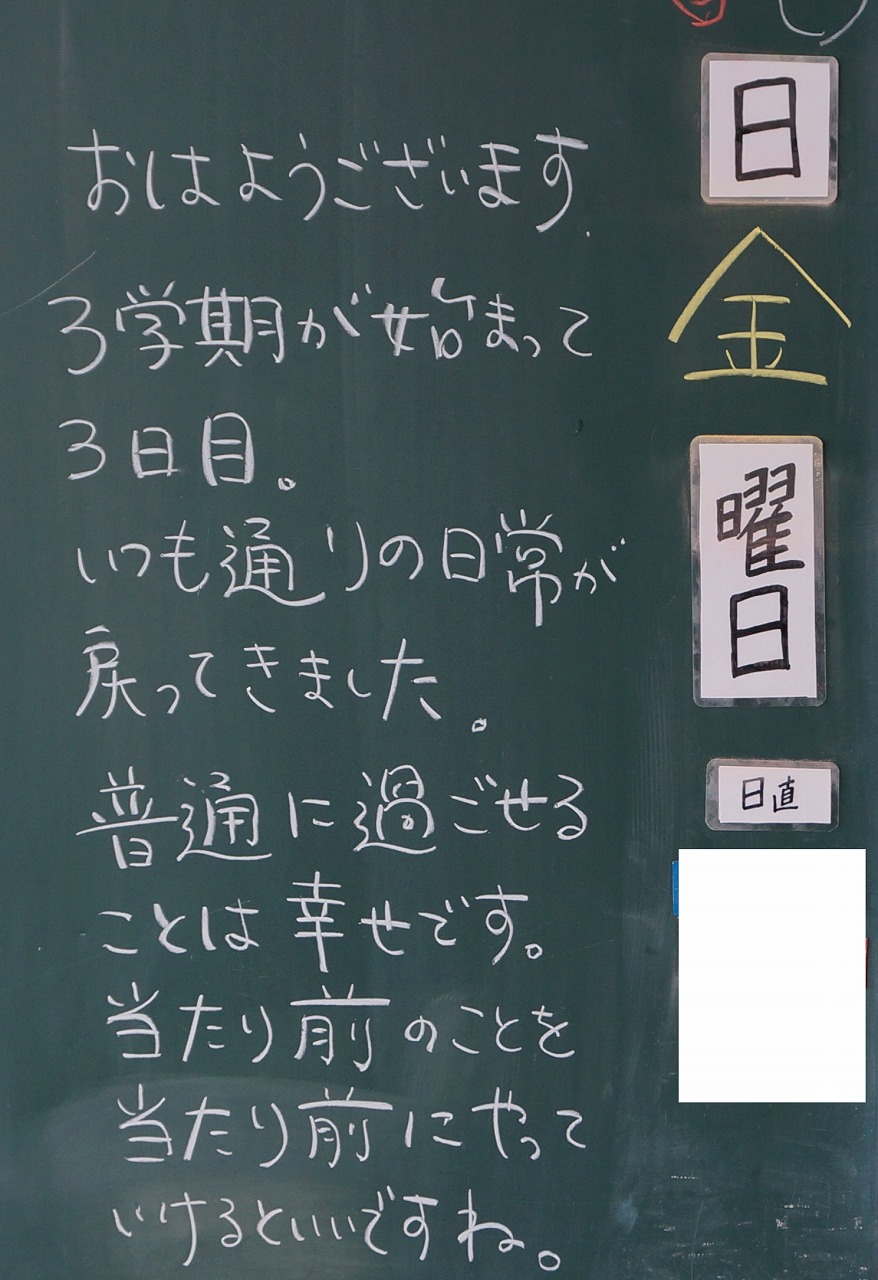 おはようございます.
3学期が始まって
3日目。
いつも通りの日常が
戻ってきました。
普通に過ごせる
ことは幸せです。
当たり前のことを
当たり前にやって
いけるといいですね。
日
金
曜日
日直